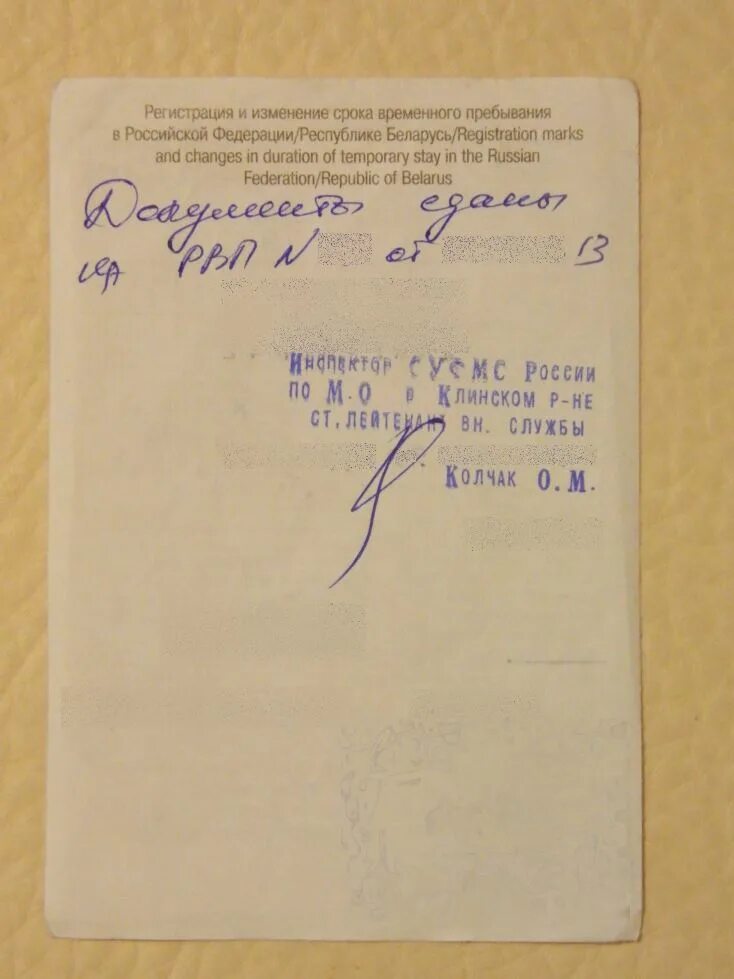 Регистрация и изменение срока временного пребывания
в Российской Федерации/Республике Беларусь/Registration marks
and changes in duration of temporary stay in the Russian
Federation/Republic of Belarus
Документы сданы
на РВП N от 13
Инспектор УФМС России
по М.О в Клинском р-не
ст. лейтенант вн. службы
Колчак О.М.